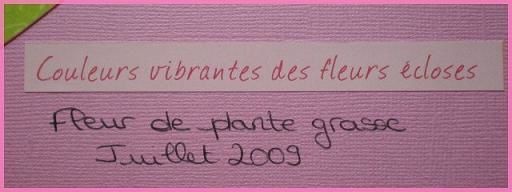 Couleurs vibrantes des fleurs écloses
Fleur de plante grasse
Juillet 2009